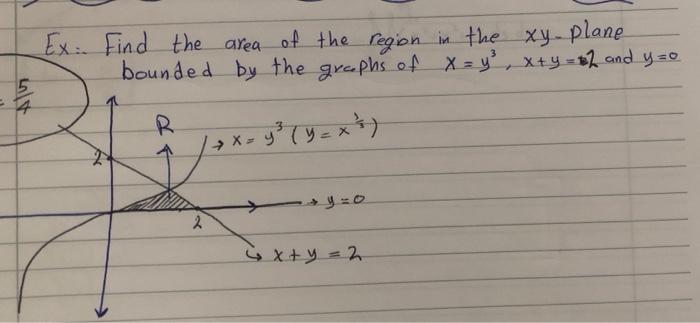 Ex:. Find the area of the region in the xy-plane
bounded by the graphs of x = y³, x+y = 2 and y=0
= 5/4
R
x = y³ (y = x^{1/3})
2
y=0
2
x+y = 2